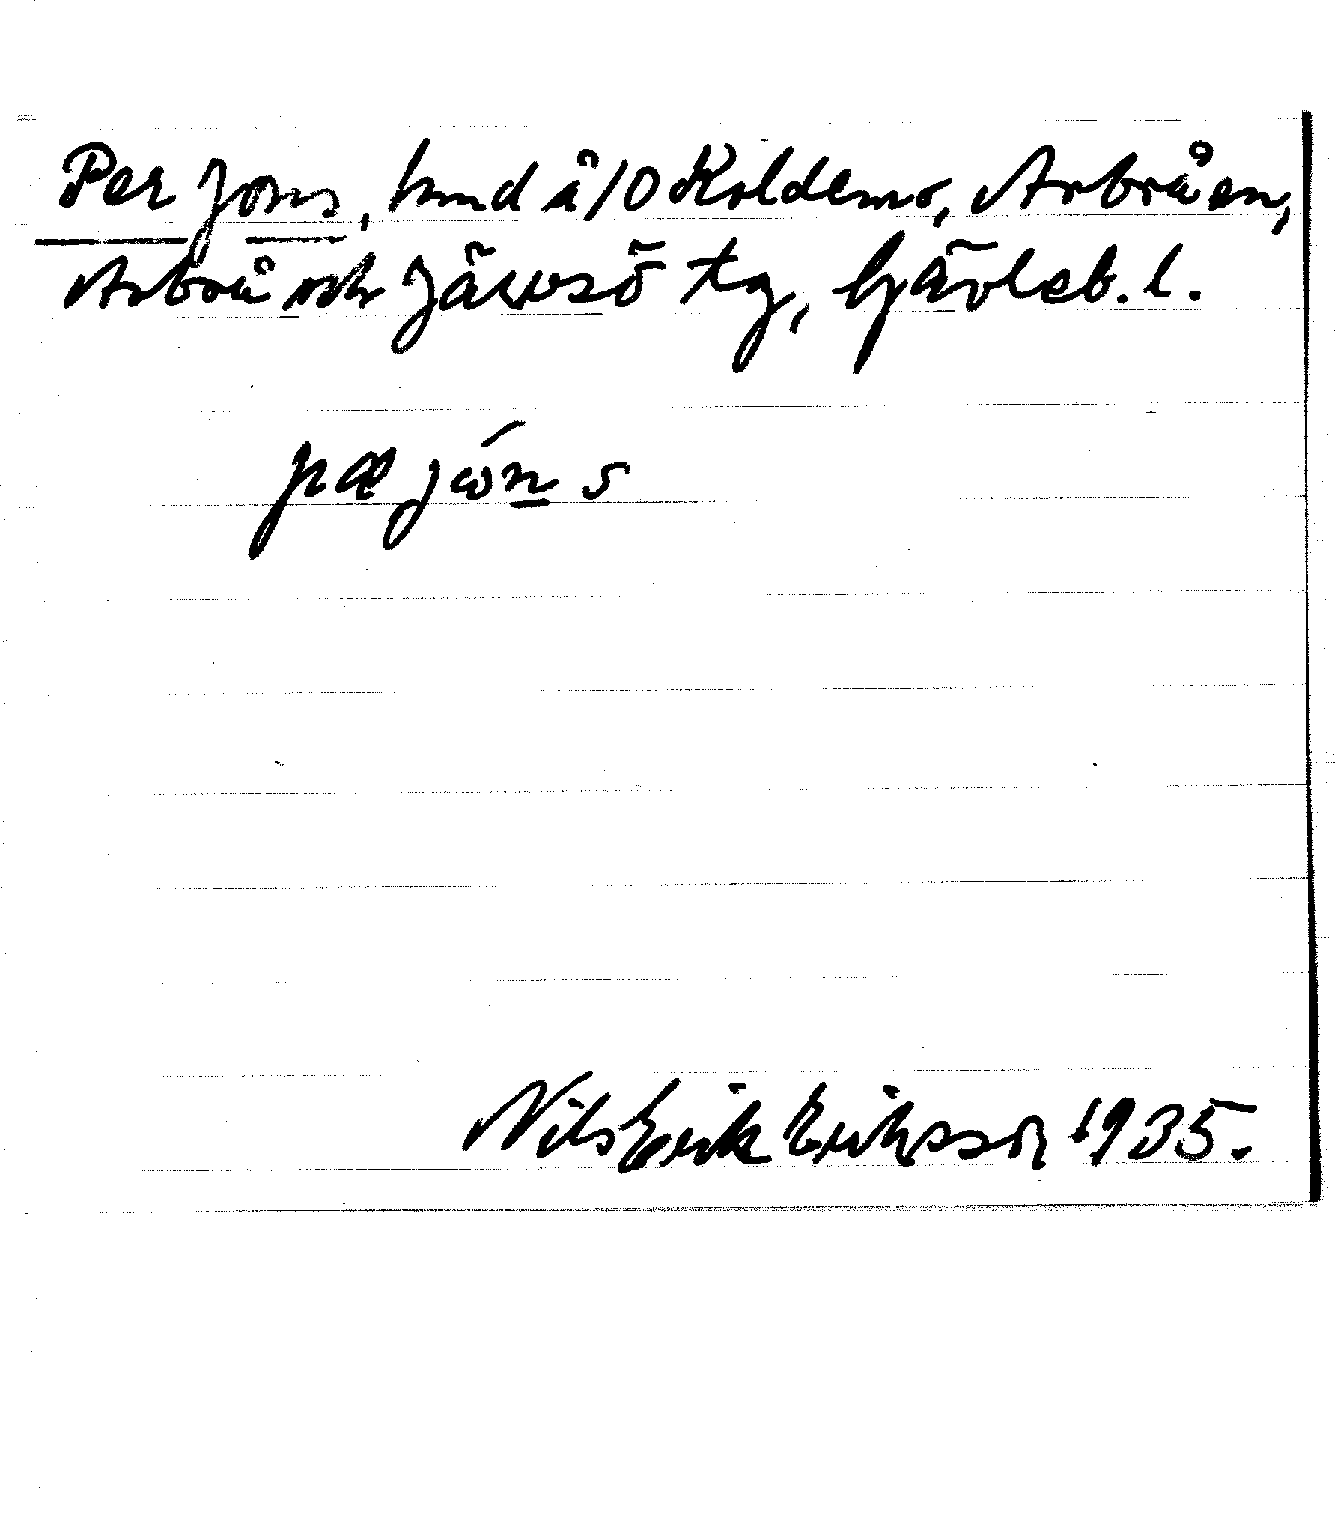 Per Jons, hmd å 10 Koldemo, Arbrå sn,
Arbrå och Järvsö tg, Gävleb. l.
pæ jòn s
Nils Erik Eriksson 1935.